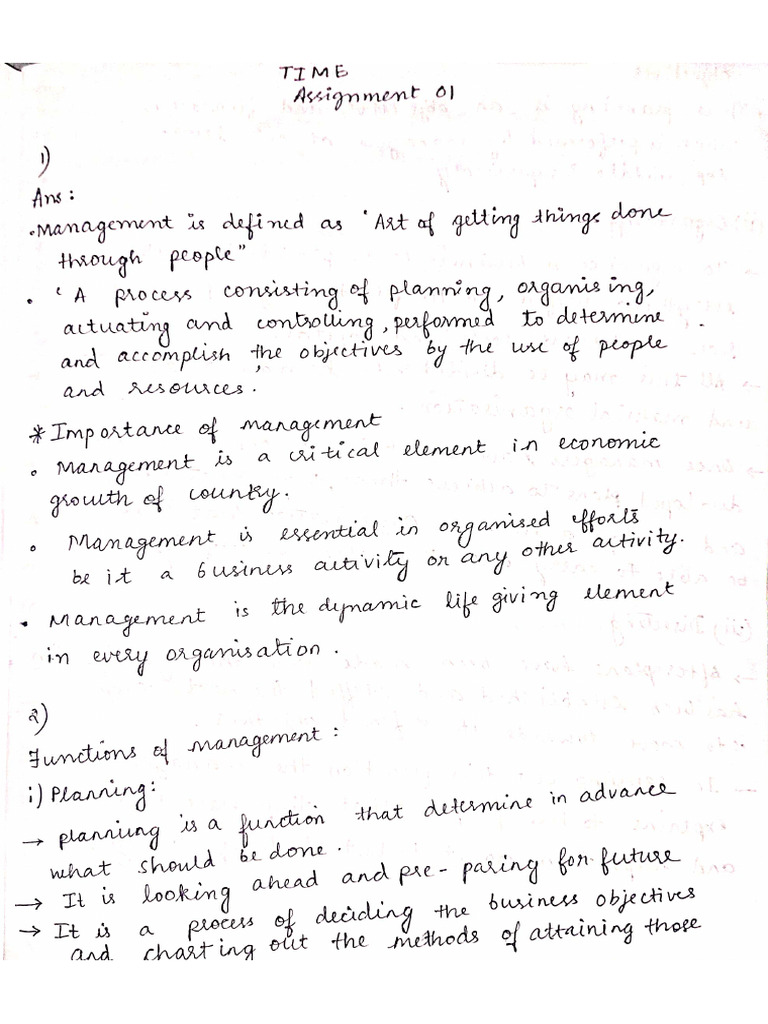 TIME
Assignment 01
1)
Ans:
• Management is defined as 'Art of getting things done
through people"
• 'A process consisting of planning, organising,
actuating and controlling, performed to determine
and accomplish the objectives by the use of people
and resources.'
* Importance of management
• Management is a critical element in economic
growth of country.
• Management is essential in organised efforts
be it a business activity or any other activity.
• Management is the dynamic life giving element
in every organisation.
2)
Functions of management:
i) Planning:
→ planniung is a function that determine in advance
what should be done.
→ It is looking ahead and pre-paring for future
→ It is a process of deciding the business objectives
and charting out the methods of attaining those